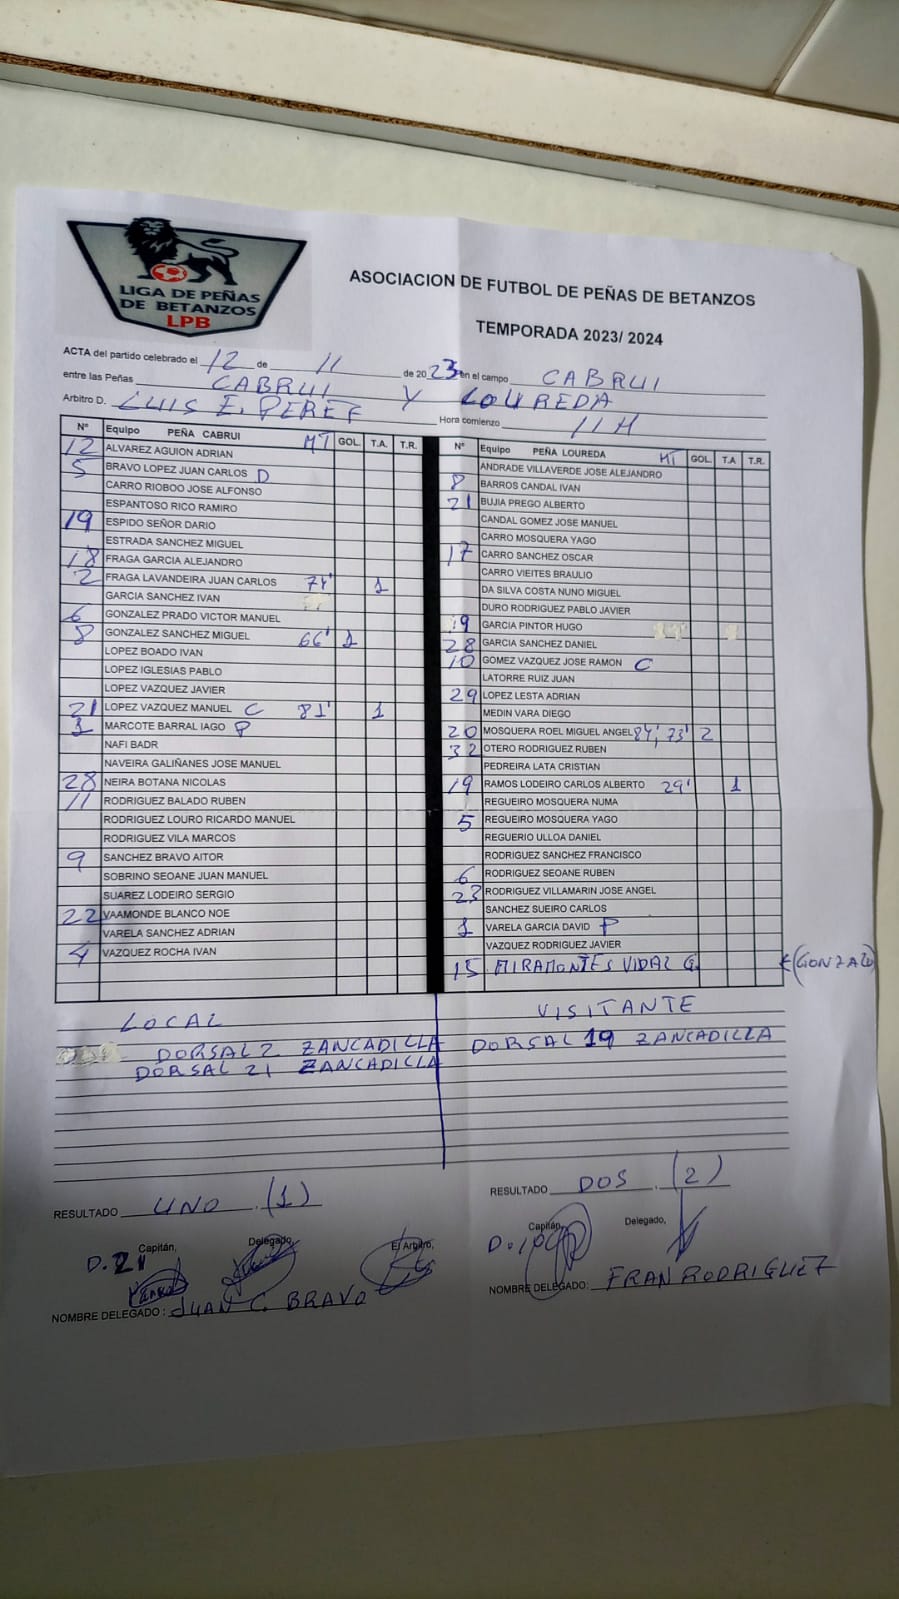 LIGA DE PEÑAS
DE BETANZOS
LPB
ASOCIACION DE FUTBOL DE PEÑAS DE BETANZOS
TEMPORADA 2023/ 2024
ACTA del partido celebrado el 12 de 11 de 2023 en el campo CABRUI
entre las Peñas CABRUI Y LOUREDA
Arbitro D. LUIS E. PEREZ Hora comienzo 11 H
Nº Equipo PEÑA CABRUI MT GOL. T.A. T.R.
12 ALVAREZ AGUION ADRIAN
5 BRAVO LOPEZ JUAN CARLOS D
CARRO RIOBOO JOSE ALFONSO
ESPANTOSO RICO RAMIRO
19 ESPIDO SEÑOR DARIO
ESTRADA SANCHEZ MIGUEL
18 FRAGA GARCIA ALEJANDRO
2 FRAGA LAVANDEIRA JUAN CARLOS 1
GARCIA SANCHEZ IVAN
6 GONZALEZ PRADO VICTOR MANUEL
8 GONZALEZ SANCHEZ MIGUEL 66' 1
LOPEZ BOADO IVAN
LOPEZ IGLESIAS PABLO
LOPEZ VAZQUEZ JAVIER
21 LOPEZ VAZQUEZ MANUEL C 81' 1
1 MARCOTE BARRAL IAGO P
NAFI BADR
NAVEIRA GALIÑANES JOSE MANUEL
28 NEIRA BOTANA NICOLAS
11 RODRIGUEZ BALADO RUBEN
RODRIGUEZ LOURO RICARDO MANUEL
RODRIGUEZ VILA MARCOS
9 SANCHEZ BRAVO AITOR
SOBRINO SEOANE JUAN MANUEL
SUAREZ LODEIRO SERGIO
22 VAAMONDE BLANCO NOE
VARELA SANCHEZ ADRIAN
4 VAZQUEZ ROCHA IVAN
Nº Equipo PEÑA LOUREDA MT GOL. T.A T.R.
ANDRADE VILLAVERDE JOSE ALEJANDRO
8 BARROS CANDAL IVAN
21 BUJIA PREGO ALBERTO
CANDAL GOMEZ JOSE MANUEL
CARRO MOSQUERA YAGO
17 CARRO SANCHEZ OSCAR
CARRO VIEITES BRAULIO
DA SILVA COSTA NUNO MIGUEL
DURO RODRIGUEZ PABLO JAVIER
GARCIA PINTOR HUGO
28 GARCIA SANCHEZ DANIEL
10 GOMEZ VAZQUEZ JOSE RAMON C
LATORRE RUIZ JUAN
29 LOPEZ LESTA ADRIAN
MEDIN VARA DIEGO
20 MOSQUERA ROEL MIGUEL ANGEL 84', 73' 2
32 OTERO RODRIGUEZ RUBEN
PEDREIRA LATA CRISTIAN
19 RAMOS LODEIRO CARLOS ALBERTO 29' 1
REGUEIRO MOSQUERA NUMA
5 REGUEIRO MOSQUERA YAGO
REGUERIO ULLOA DANIEL
RODRIGUEZ SANCHEZ FRANCISCO
6 RODRIGUEZ SEOANE RUBEN
23 RODRIGUEZ VILLAMARIN JOSE ANGEL
SANCHEZ SUEIRO CARLOS
1 VARELA GARCIA DAVID P
VAZQUEZ RODRIGUEZ JAVIER
15 MIRAMONTES VIDAL G. (GONZALO)
LOCAL
DORSAL 2 ZANCADILLA
DORSAL 21 ZANCADILLA
VISITANTE
DORSAL 19 ZANCADILLA
RESULTADO UNO (1)
Capitán, Delegado, El Arbitro,
D. 21
NOMBRE DELEGADO : JUAN C. BRAVO
RESULTADO DOS (2)
Capitán, Delegado,
D. 10
NOMBRE DELEGADO: FRAN RODRIGUEZ